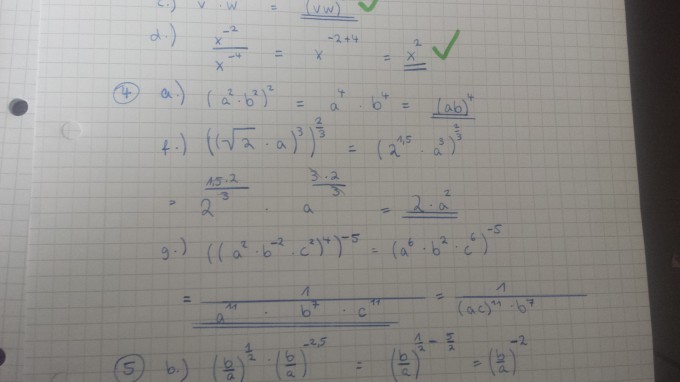 c.) v · w = (vw) ✓
d.) x^-2 / x^-4 = x^-2+4 = x^2 ✓
④ a.) (a^2 · b^2)^2 = a^4 · b^4 = (ab)^4
f.) ((√2 · a)^3)^(2/3) = (2^1,5 · a^3)^(2/3)
= 2^(1,5·2/3) · a^(3·2/3) = 2 · a^2
g.) ((a^2 · b^-2 · c^2)^4)^-5 = (a^6 · b^2 · c^6)^-5
= 1 / (a^11 · b^7 · c^11) = 1 / ((ac)^11 · b^7)
⑤ b.) (b/a)^(1/2) · (b/a)^-2,5 = (b/a)^(1/2 - 5/2) = (b/a)^-2